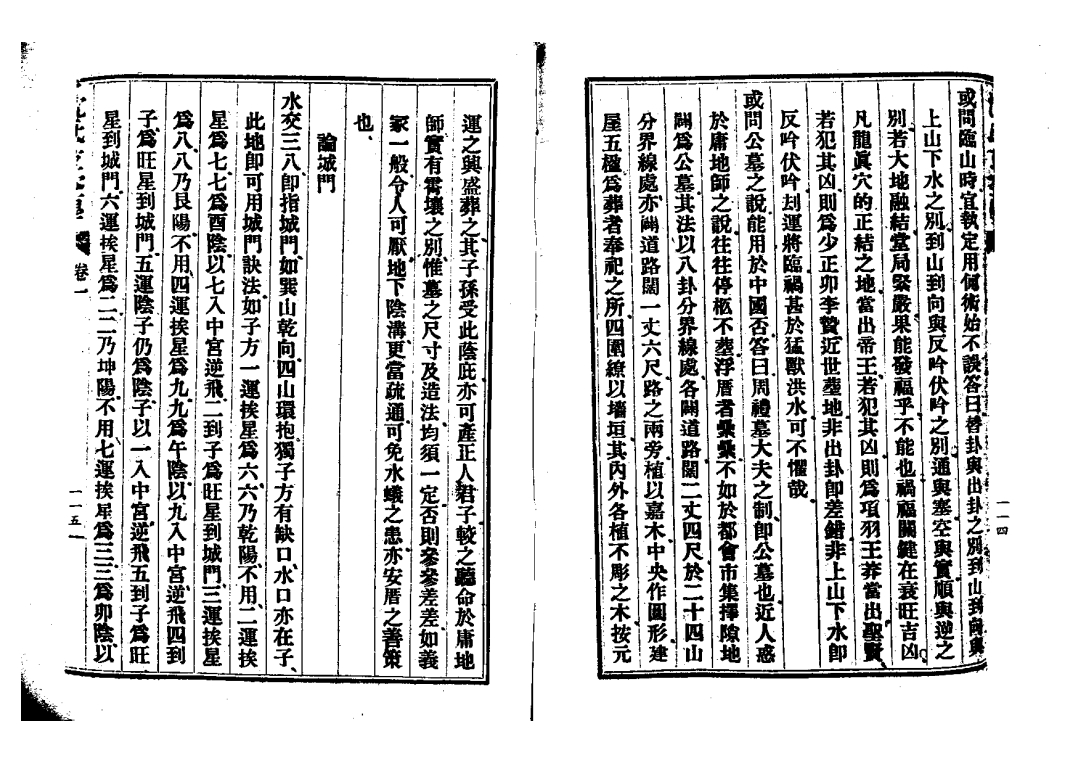 或問臨山時宜執定用何術始不誤答曰替卦與出卦之別到山到向與
上山下水之別到山到向與反吟伏吟之別通與塞空與實順與逆之
別若大地融結堂局緊嚴果能發福乎不能也禍福關鍵在衰旺吉凶
凡龍眞穴的正結之地當出帝王若犯其凶則爲項羽王莽當出聖賢
若犯其凶則爲少正卯李贄近世塟地非出卦卽差錯非上山下水卽
反吟伏吟刦運將臨禍甚於猛獸洪水可不懼哉
或問公墓之說能用於中國否答曰周禮墓大夫之制卽公墓也近人惑
於庸地師之說往往停柩不塟浮厝者纍纍不如於都會市集擇隙地
闢爲公墓其法以八卦分界線處各闢道路闊二丈四尺於二十四山
分界線處亦闢道路闊一丈六尺路之兩旁植以嘉木中央作圓形建
屋五楹爲葬者奉祀之所四圍繚以墻垣其內外各植不彫之木按元
一一四
運之興盛葬之其子孫受此蔭庇亦可產正人君子較之聽命於庸地
師實有霄壤之別惟墓之尺寸及造法均須一定否則參參差差如義
冢一般令人可厭地下陰溝更當疏通可免水蟻之患亦安厝之善策
也、
論城門
水交三八卽指城門如巽山乾向四山環抱獨子方有缺口水口亦在子、
此地卽可用城門訣法如子方一運挨星爲六六乃乾陽不用、二運挨
星爲七七爲酉陰以七入中宮逆飛二到子爲旺星到城門三運挨星
爲八八乃艮陽不用四運挨星爲九九爲午陰以九入中宮逆飛四到
子爲旺星到城門五運陰子仍爲陰子以一入中宮逆飛五到子爲旺
星到城門六運挨星爲二二乃坤陽不用七運挨星爲三三爲卯陰以
卷一
一一五